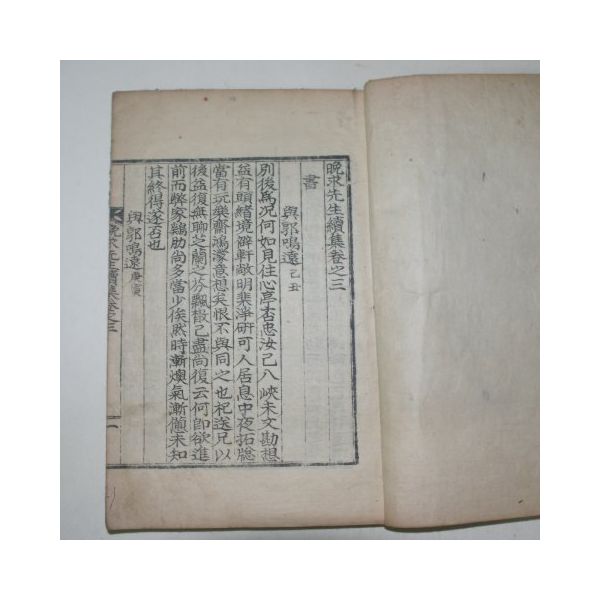 晩求先生續集卷之三
書
與郭鳴遠 己丑
別後爲況何如見住心亭否忠汝已入峽未文勘想
益有頭緖境僻軒敞明棐淨硏可人居息中夜拓牕
當有玩樂齋鴻濛意想矣恨不與同之也祀送兄以
後益復無聊之蘭之芬飄散已盡尙復云何卽欲進
前而弊家鷄肋尙多當少俟然時漸燠氣漸憊未知
其終得遂否也
與郭鳴遠 庚寅
晩求先生續集卷之三 一